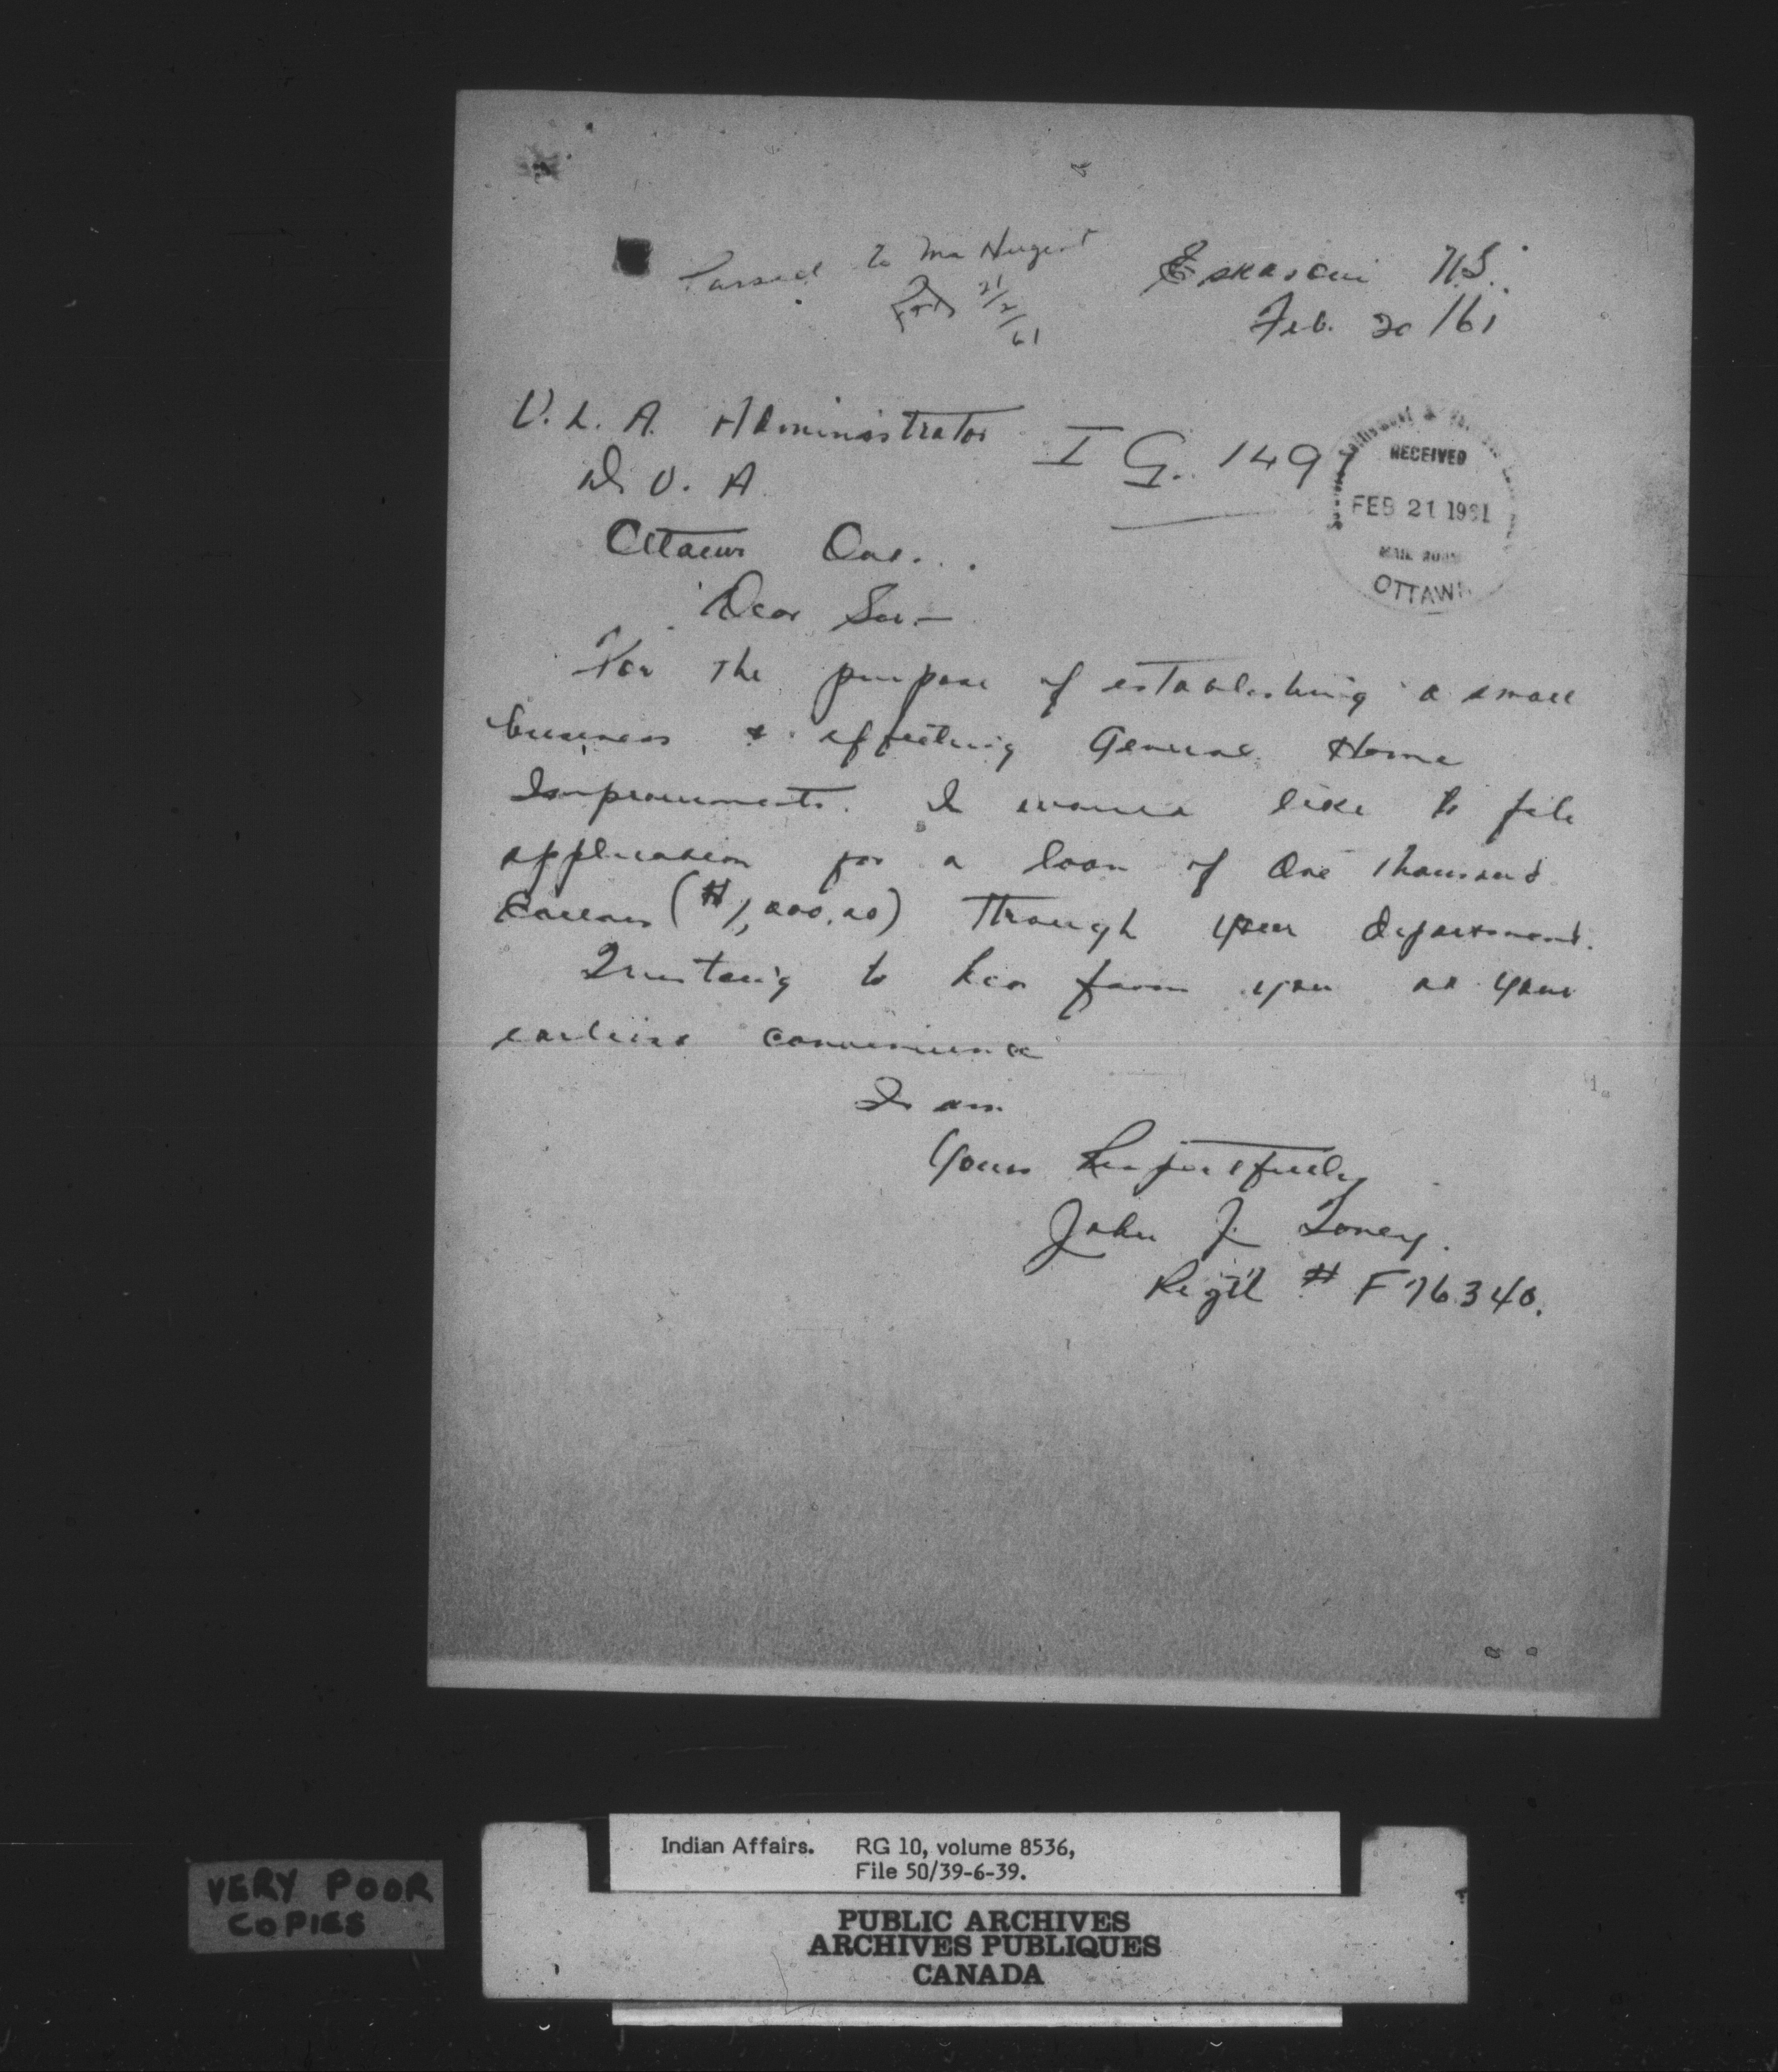 Passed to Mr Nugent
21/2/61
Eskasoni N.S.
Feb. 20/61
V. L. A. Administrator
D. V. A.
Ottawa Ont.
I G. 149
RECEIVED
FEB 21 1961
MAIL ROOM
OTTAWA
Dear Sir:—
For the purpose of establishing a small
business & effecting General Home
Improvements. I would like to file
application for a loan of One thousand
Dollars ($1,000.00) through your department.
Trusting to hear from you at your
earliest convenience
I am
Yours Respectfully
John J. Toney.
Reg't'l # F76340.
Indian Affairs. RG 10, volume 8536,
File 50/39-6-39.
VERY POOR
COPIES
PUBLIC ARCHIVES
ARCHIVES PUBLIQUES
CANADA